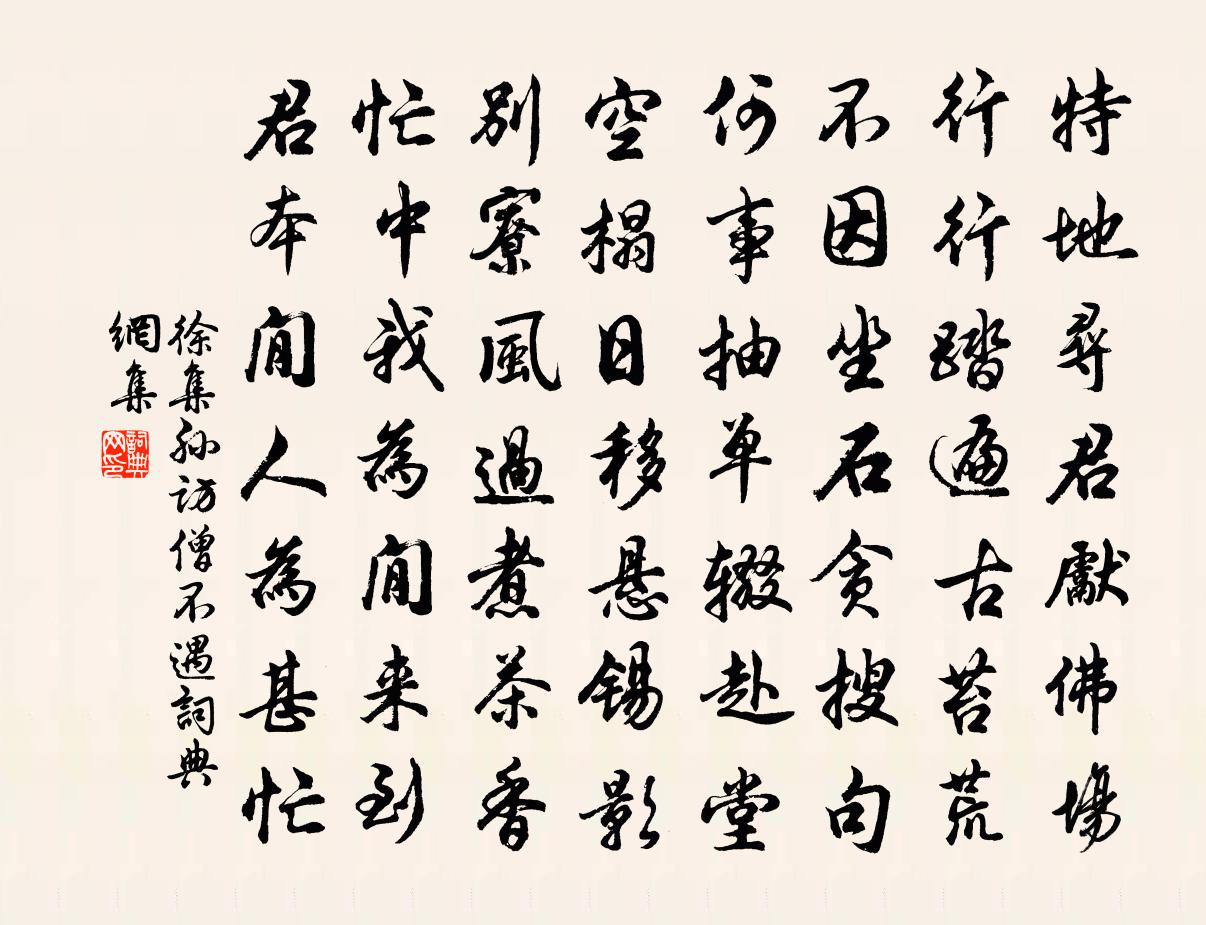 特地尋君獻佛場
行行踏遍古苔荒
不因坐石貪搜句
何事抽单辍赴堂
空榻日移悬锡影
別寮風過煮茶香
忙中我為閒来到
君本閒人為甚忙
徐集孙访僧不遇詞典
網集
詞典
网印